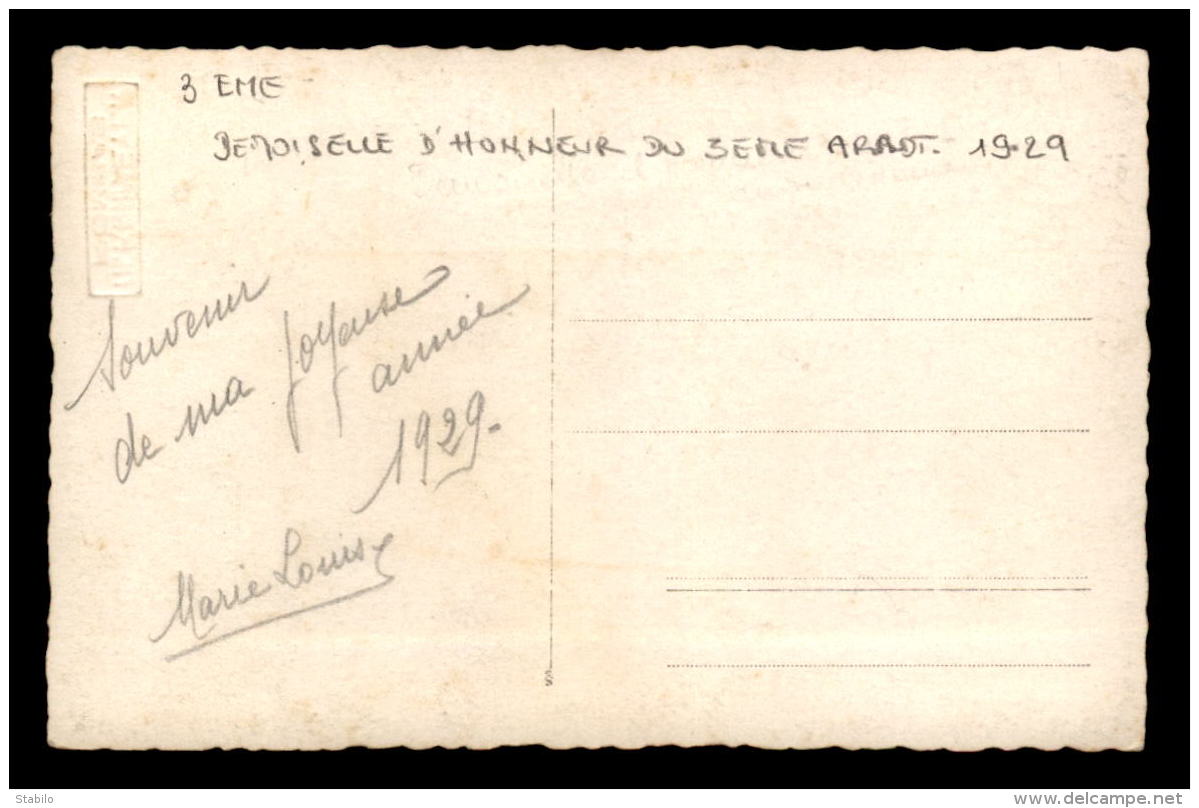 3 EME -
DEMOISELLE D'HONNEUR DU 3EME ARRDT. 19.29
Souvenir
de ma joyeuse
année
1929.
Marie Louise
S
Stabilo
www.delcampe.net